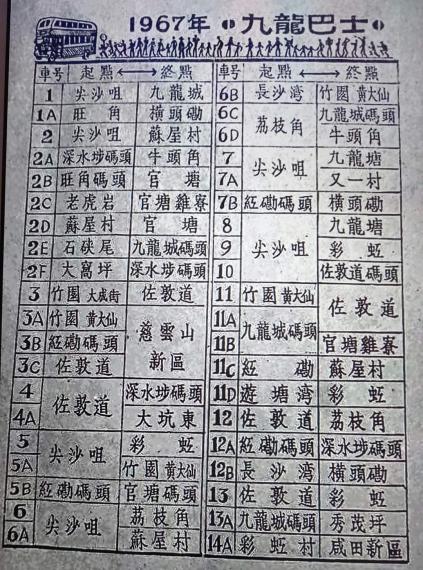 1967年 九龍巴士
車号 起點 ⟷ 終點
1 尖沙咀 九龍城
1A 旺角 橫頭磡
2 尖沙咀 蘇屋村
2A 深水埗碼頭 牛頭角
2B 旺角碼頭 官塘
2C 老虎岩 官塘雞寮
2D 蘇屋村 官塘
2E 石硤尾 九龍城碼頭
2F 大窩坪 深水埗碼頭
3 竹園 大成街 佐敦道
3A 竹園 黄大仙 慈雲山新區
3B 紅磡碼頭
3C 佐敦道
4 佐敦道 深水埗碼頭
4A 大坑東
5 尖沙咀 彩虹
5A 竹園 黄大仙
5B 紅磡碼頭 官塘碼頭
6 尖沙咀 荔枝角
6A 蘇屋村
車号 起點 ⟷ 終點
6B 長沙湾 竹園 黄大仙
6C 荔枝角 九龍城碼頭
6D 牛頭角
7 尖沙咀 九龍塘
7A 又一村
7B 紅磡碼頭 橫頭磡
8 尖沙咀 九龍塘
9 彩虹
10 佐敦道碼頭
11 竹園 黄大仙 佐敦道
11A 九龍城碼頭
11B 官塘雞寮
11C 紅磡 蘇屋村
11D 遊塘湾 彩虹
12 佐敦道 荔枝角
12A 紅磡碼頭 深水埗碼頭
12B 長沙湾 橫頭磡
13 佐敦道 彩虹
13A 九龍城碼頭 秀茂坪
14A 彩虹村 咸田新區